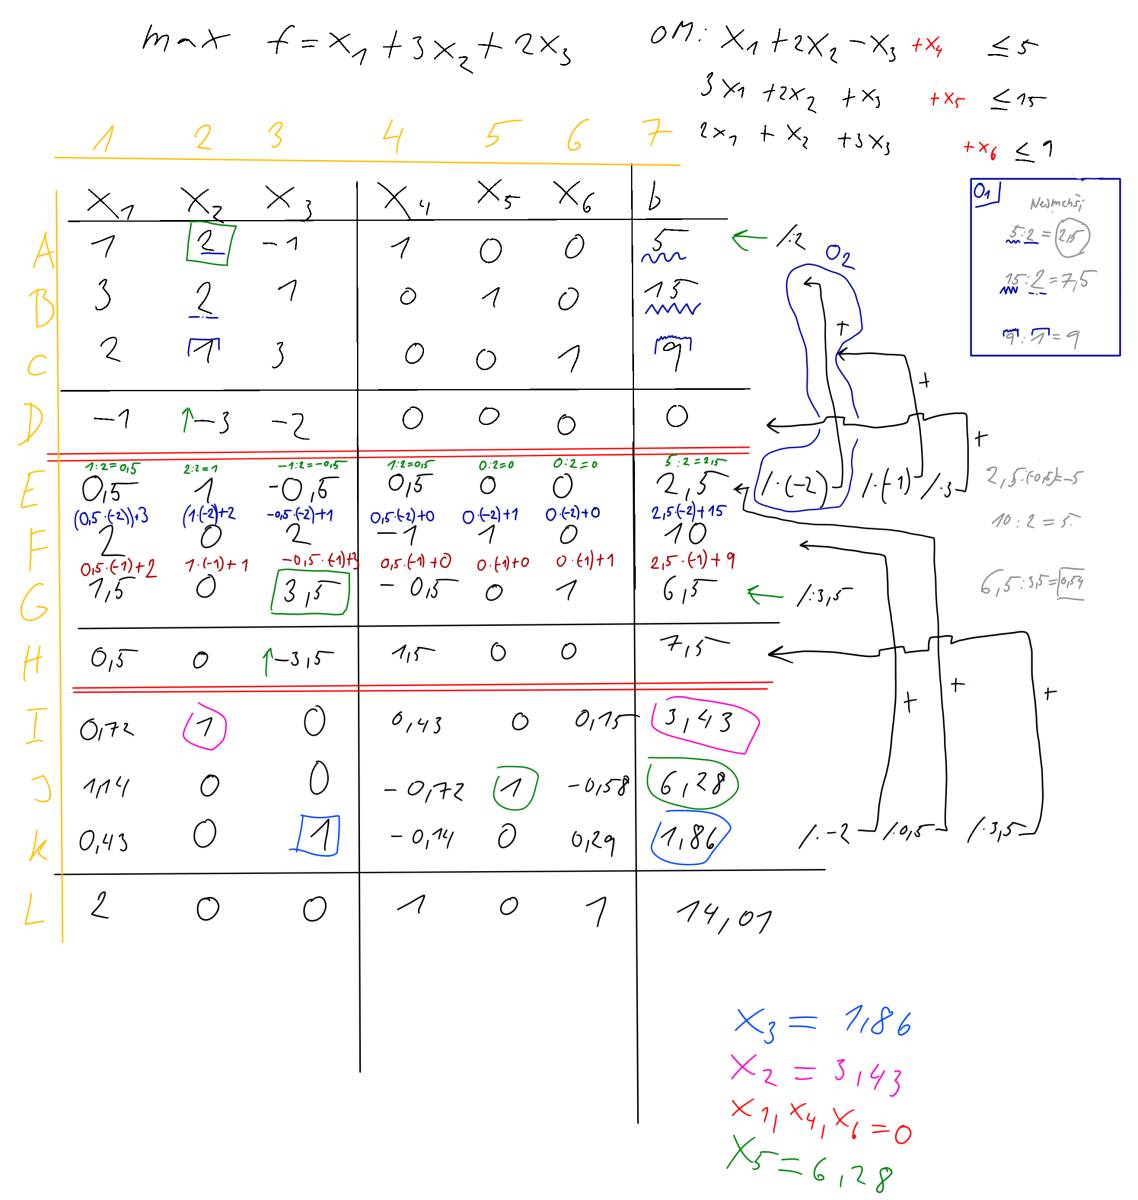 max f = x₁ + 3x₂ + 2x₃
OM: x₁ + 2x₂ - x₃ +x₄ ≤ 5
3x₁ + 2x₂ + x₃ +x₅ ≤ 15
2x₁ + x₂ + 3x₃ +x₆ ≤ 9
1 2 3 4 5 6 7
x₁ x₂ x₃ x₄ x₅ x₆ b
A 1 2 -1 1 0 0 5 ← /:2
B 3 2 1 0 1 0 15
C 2 1 3 0 0 1 9
D -1 ↑-3 -2 0 0 0 0
O1
5:2 = 2,5
15:2 = 7,5
9:1 = 9
O2
+
+
+
1:2=0,5 2:2=1 -1:2=-0,5 1:2=0,5 0:2=0 0:2=0 5:2=2,5
E 0,5 1 -0,5 0,5 0 0 2,5 /·(-2) /·(-1) /·3
(0,5·(-2))+3 (1·(-2)+2 -0,5·(-2)+1 0,5·(-2)+0 0·(-2)+1 0·(-2)+0 2,5·(-2)+15
F 2 0 2 -1 1 0 10
0,5·(-1)+2 1·(-1)+1 -0,5·(-1)+3 0,5·(-1)+0 0·(-1)+0 0·(-1)+1 2,5·(-1)+9
G 1,5 0 3,5 -0,5 0 1 6,5 ← /:3,5
H 0,5 0 ↑-3,5 1,5 0 0 7,5
2,5:(-0,5)=-5
10:2=5
6,5:3,5=
+
+
+
I 0,72 1 0 0,43 0 0,15 3,43
J 1,14 0 0 -0,72 1 -0,58 6,28
K 0,43 0 1 -0,14 0 0,29 1,86 /·-2 /·0,5 /·3,5
L 2 0 0 1 0 1 14,01
x₃ = 1,86
x₂ = 3,43
x₁, x₄, x₆ = 0
x₅ = 6,28